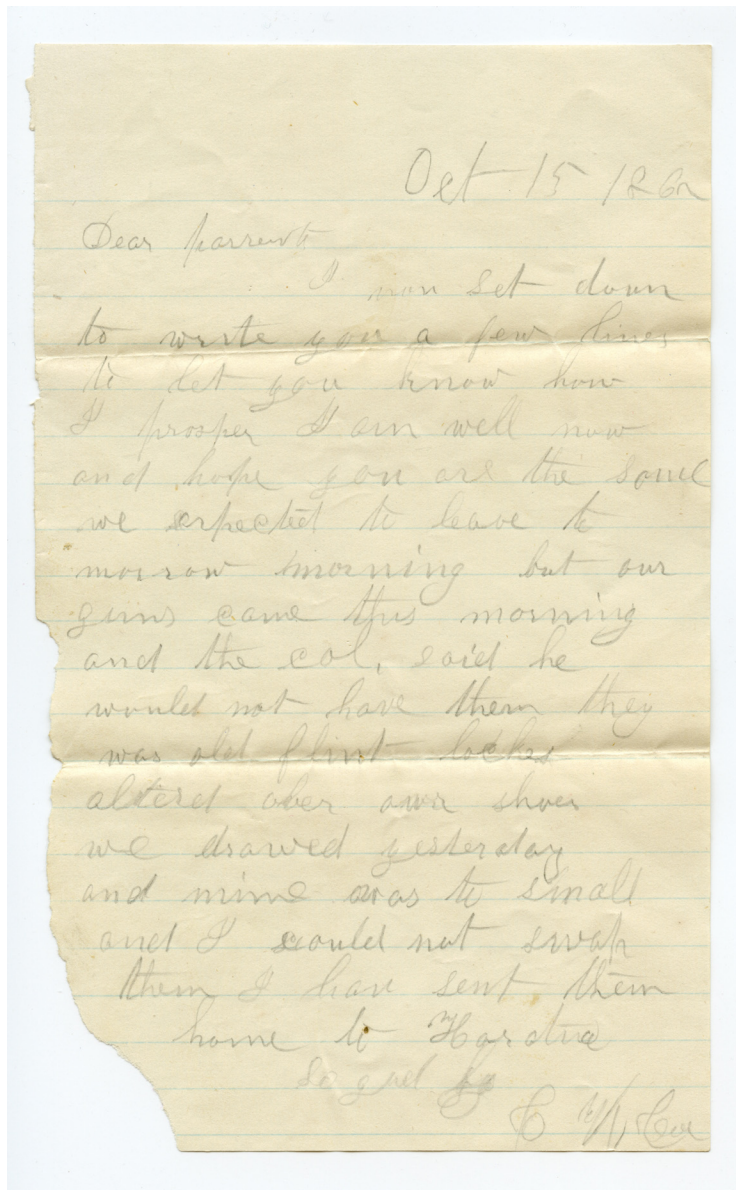 Oct 15 1862
Dear parrents
I now set down
to write you a few lines
to let you know how
I prosper I am well now
and hope you are the same
we expected to leave to
morrow morning but our
guns came this morning
and the col. said he
would not have them they
was old flint locks
alterd ober owr shoes
we drawed yesterday
and mine was to small
and I could not swap
them I have sent them
home to
so good by
C